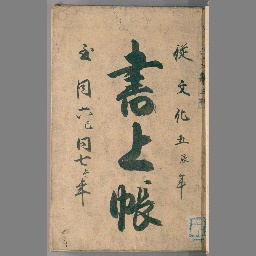 従文化五辰年
書上帳
至同六巳同七午年